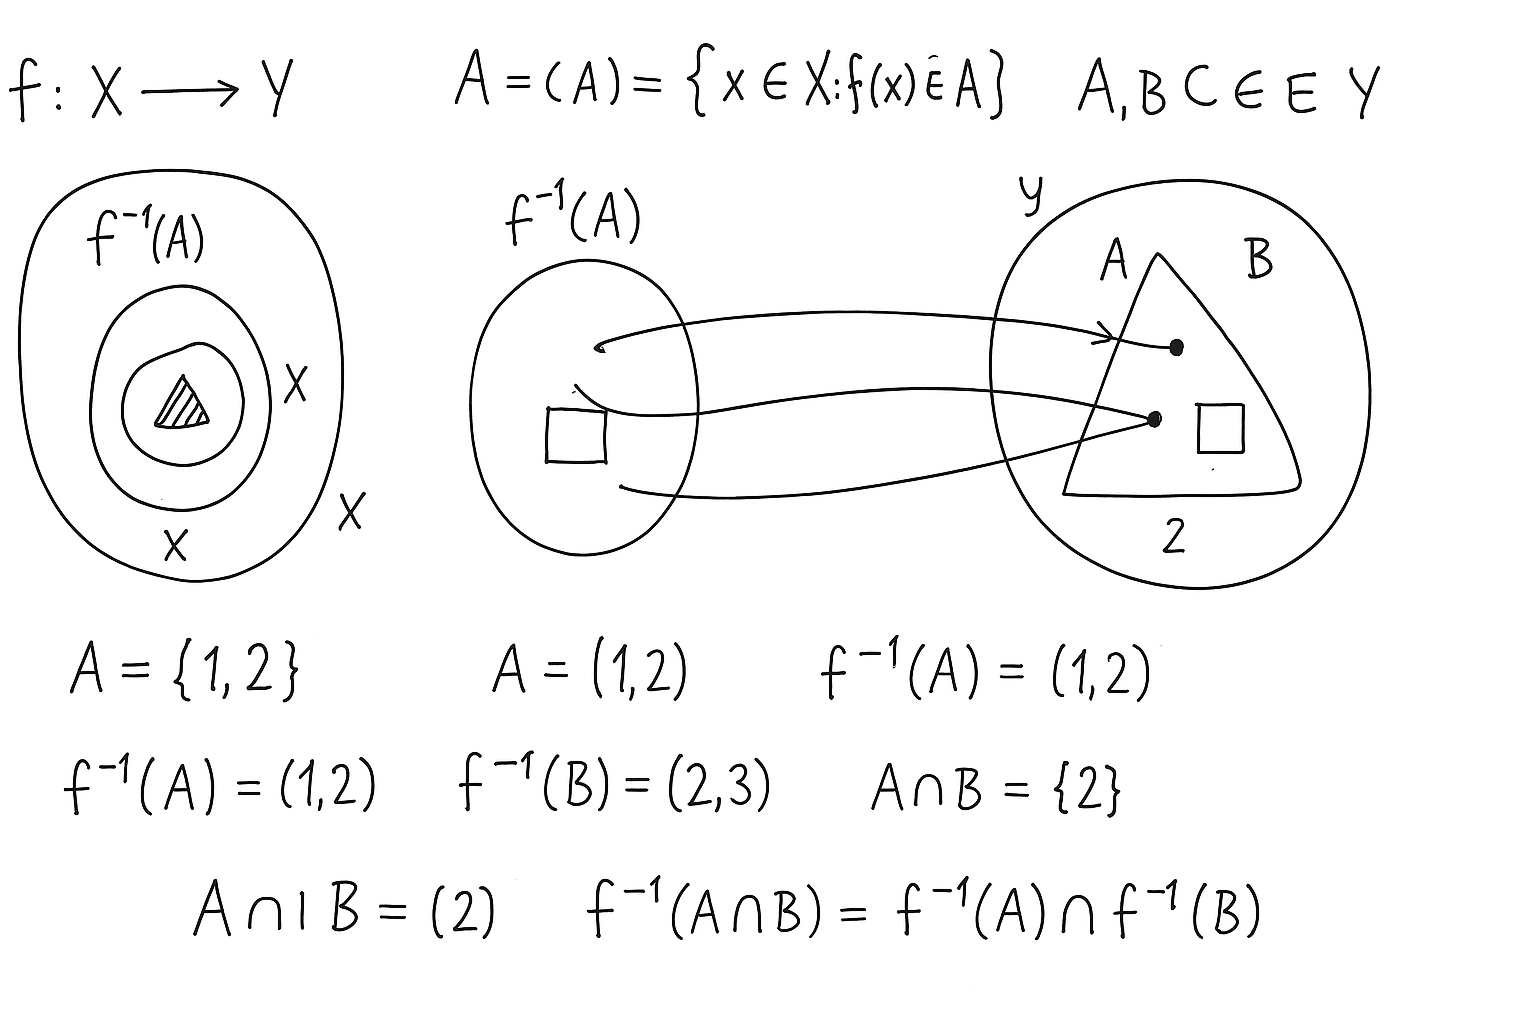 f: X ⟶ Y    A = (A) = {x ∈ X: f(x) ∈ A}    A, B C ∈ E Y
f⁻¹(A)    f⁻¹(A)    y
A    B
X
X    X    2
A = {1, 2}    A = (1,2)    f⁻¹(A) = (1,2)
f⁻¹(A) = (1,2)    f⁻¹(B) = (2,3)    A∩B = {2}
A∩I B = (2)    f⁻¹(A∩B) = f⁻¹(A) ∩ f⁻¹(B)